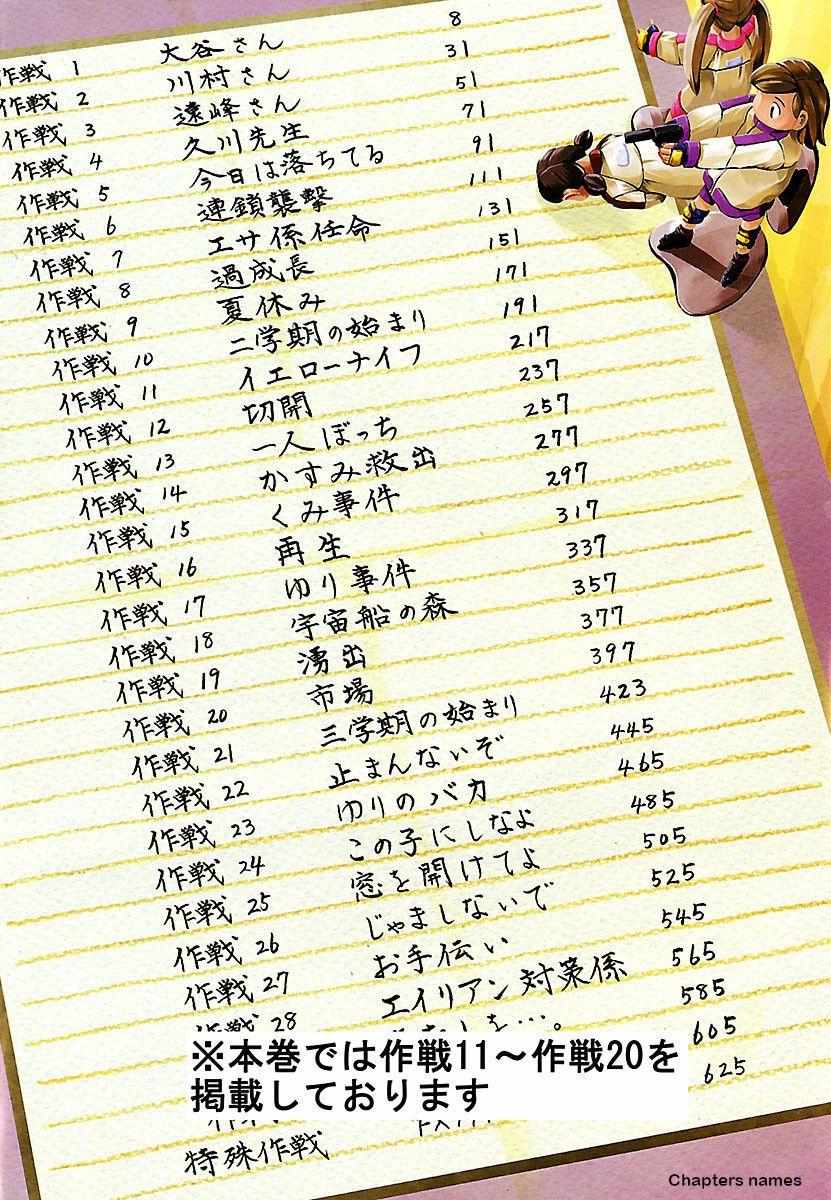 作戦 1 大谷さん 8
作戦 2 川村さん 31
作戦 3 遠峰さん 51
作戦 4 久川先生 71
作戦 5 今日は落ちてる 91
作戦 6 連鎖襲撃 111
作戦 7 エサ係任命 131
作戦 8 過成長 151
作戦 9 夏休み 171
作戦 10 二学期の始まり 191
作戦 11 イエローナイフ 217
作戦 12 切開 237
作戦 13 一人ぼっち 257
作戦 14 かすみ救出 277
作戦 15 くみ事件 297
作戦 16 再生 317
作戦 17 ゆり事件 337
作戦 18 宇宙船の森 357
作戦 19 湧出 377
作戦 20 市場 397
作戦 21 三学期の始まり 423
作戦 22 止まんないぞ 445
作戦 23 ゆりのバカ 465
作戦 24 この子にしなよ 485
作戦 25 窓を開けてよ 505
作戦 26 じゃましないで 525
作戦 27 お手伝い 545
作戦 28 エイリアン対策係 565
を…。 585
605
特殊作戦 625
※本巻では作戦11～作戦20を
掲載しております
Chapters names